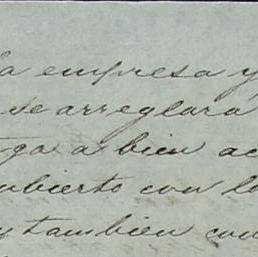 la empresa y
se arreglara
ga a bien ac
ubierto con lo
y tambien con